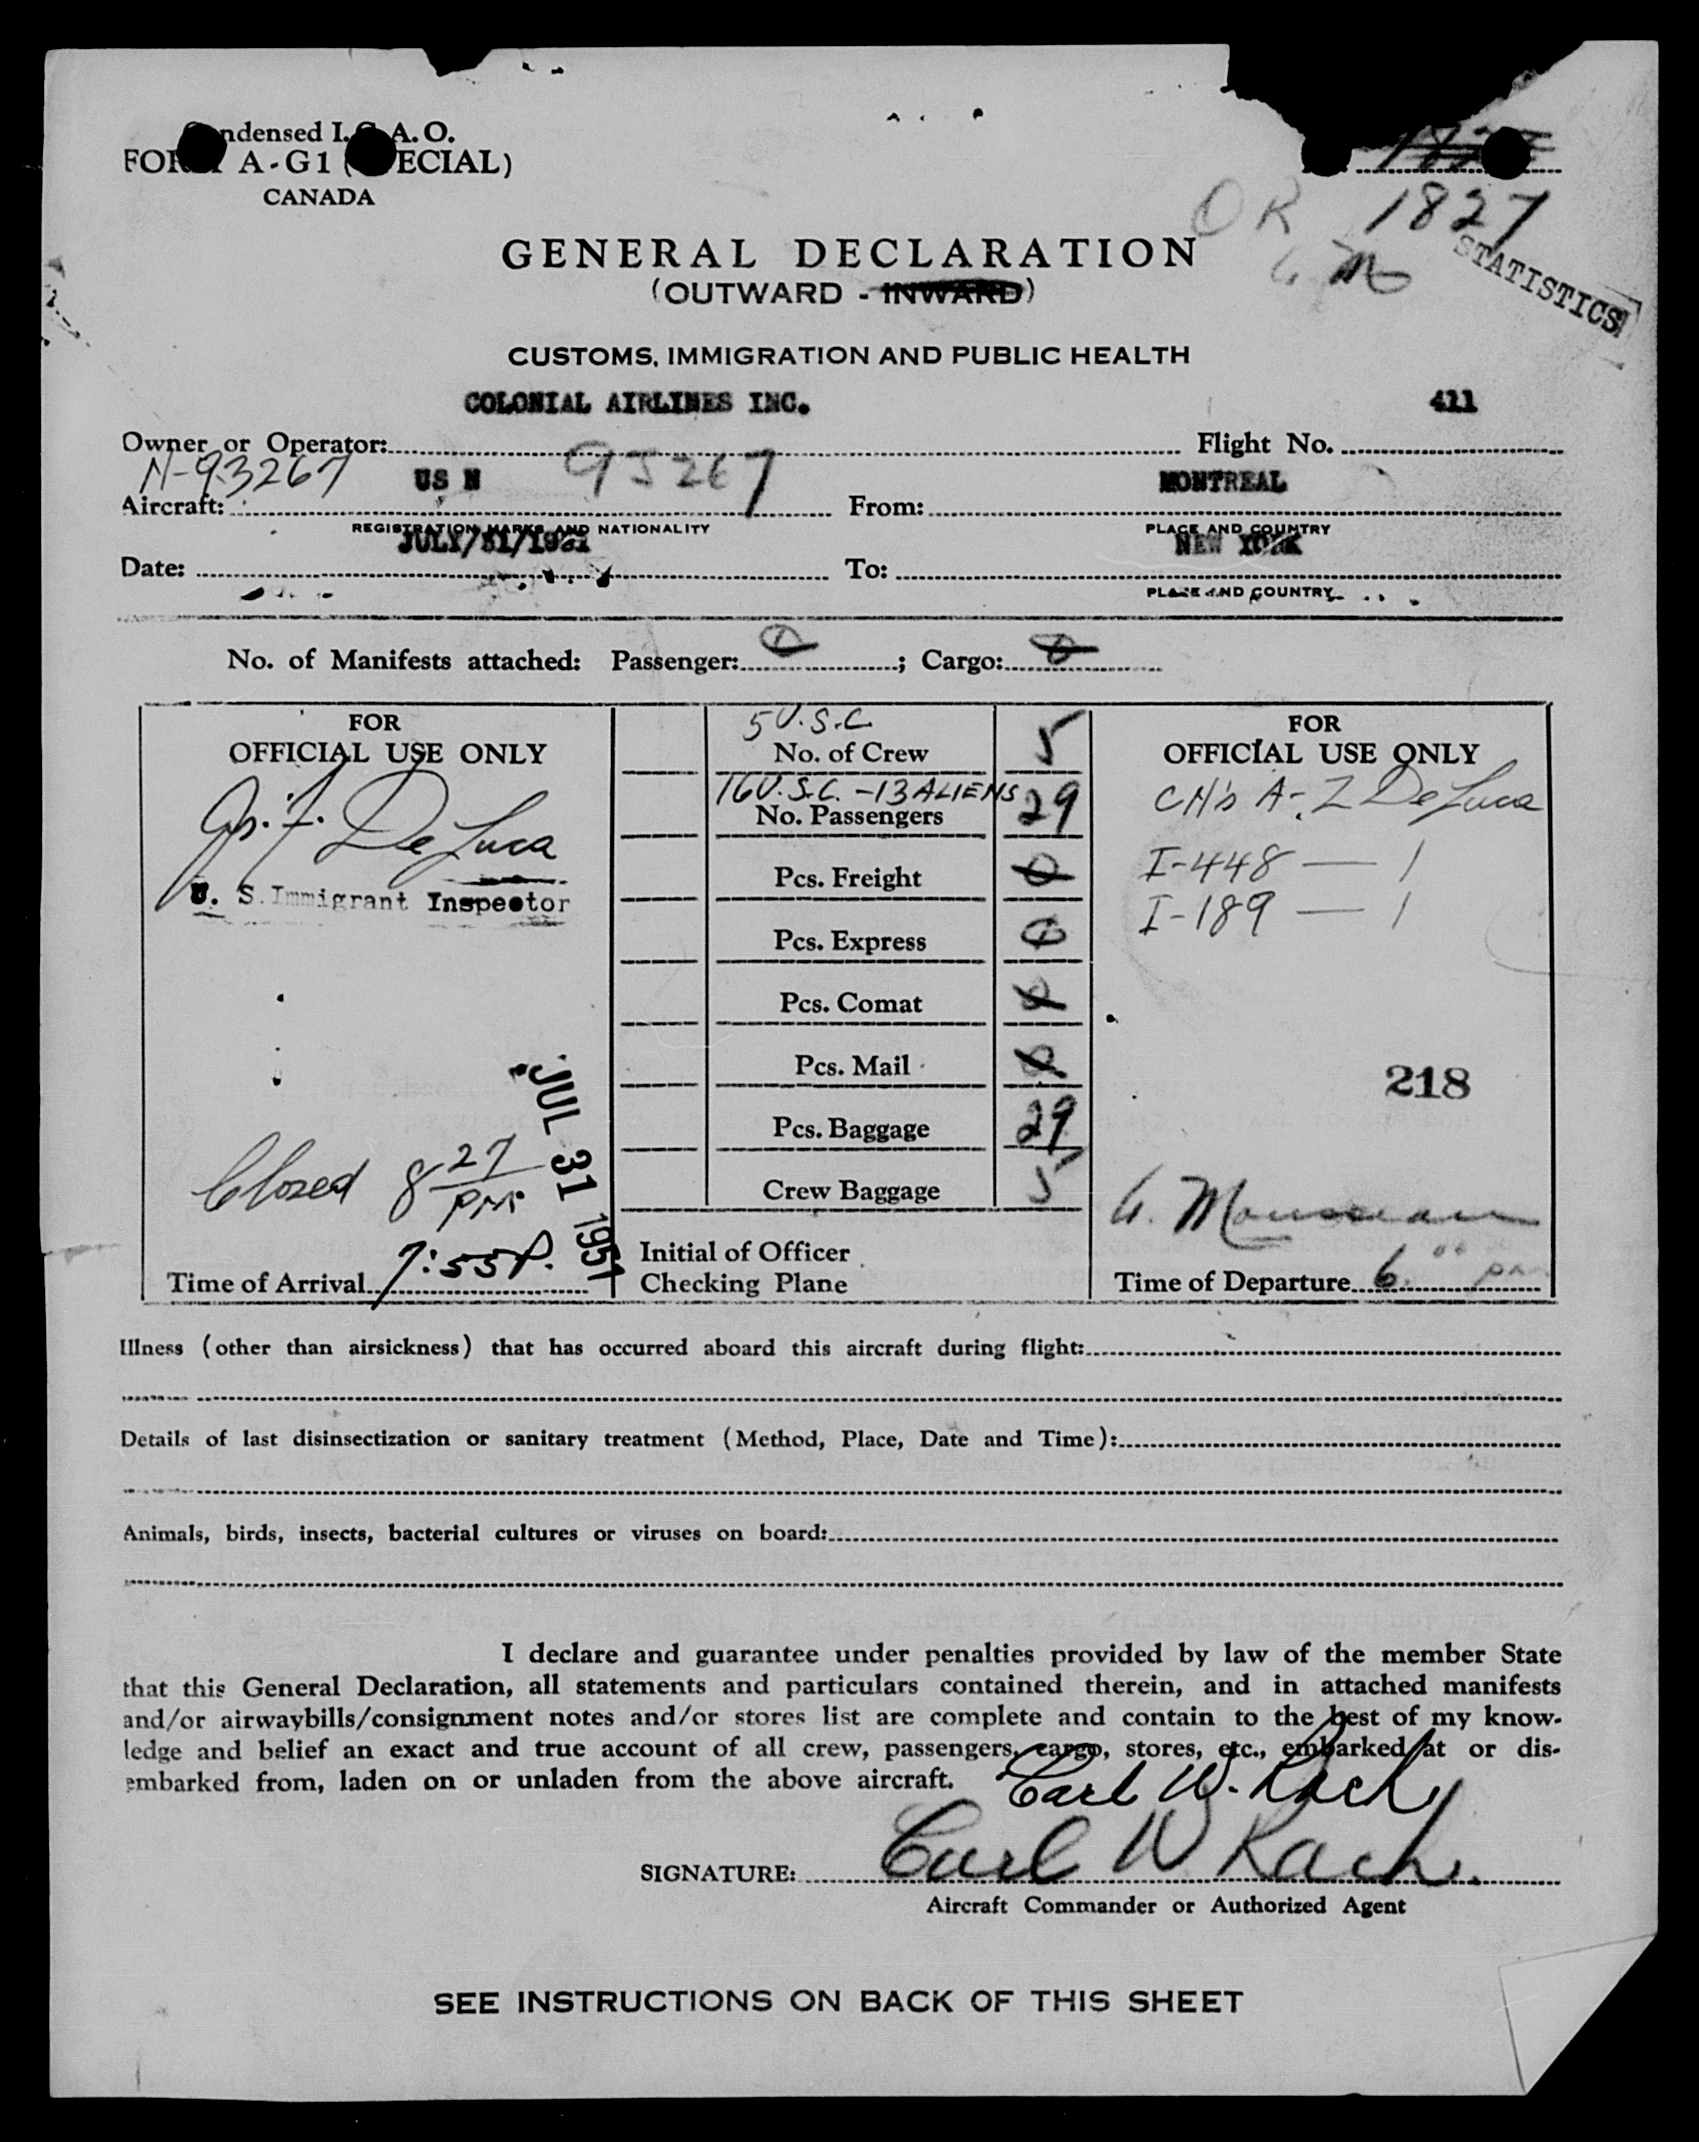 Condensed I.C.A.O.
FORM A-G1 (SPECIAL)
CANADA
OK 1827
STATISTICS
GENERAL DECLARATION
(OUTWARD - INWARD)
CUSTOMS, IMMIGRATION AND PUBLIC HEALTH
COLONIAL AIRLINES INC. 411
Owner or Operator: Flight No.
N-93267 US N 93267 MONTREAL
Aircraft: From:
REGISTRATION MARKS AND NATIONALITY PLACE AND COUNTRY
JULY/31/1951 NEW YORK
Date: To:
PLACE AND COUNTRY
No. of Manifests attached: Passenger: 0; Cargo: 0
FOR
OFFICIAL USE ONLY
Jos. F. DeLuca
U. S. Immigrant Inspector
Closed 8 27 pm
JUL 31 1951
Time of Arrival 7:55P.
5 U.S.C.
No. of Crew 5
16 U.S.C. - 13 ALIENS
No. Passengers 29
Pcs. Freight 0
Pcs. Express 0
Pcs. Comat 0
Pcs. Mail 0
Pcs. Baggage 29
Crew Baggage 5
Initial of Officer
Checking Plane
FOR
OFFICIAL USE ONLY
CH's A-Z DeLuca
I-448 — 1
I-189 — 1
218
G. Mousseau
Time of Departure 6 00 pm
Illness (other than airsickness) that has occurred aboard this aircraft during flight:
Details of last disinsectization or sanitary treatment (Method, Place, Date and Time):
Animals, birds, insects, bacterial cultures or viruses on board:
I declare and guarantee under penalties provided by law of the member State
that this General Declaration, all statements and particulars contained therein, and in attached manifests
and/or airwaybills/consignment notes and/or stores list are complete and contain to the best of my know-
ledge and belief an exact and true account of all crew, passengers, cargo, stores, etc., embarked at or dis-
embarked from, laden on or unladen from the above aircraft.
Carl W. Rach
SIGNATURE: Carl W Rach.
Aircraft Commander or Authorized Agent
SEE INSTRUCTIONS ON BACK OF THIS SHEET